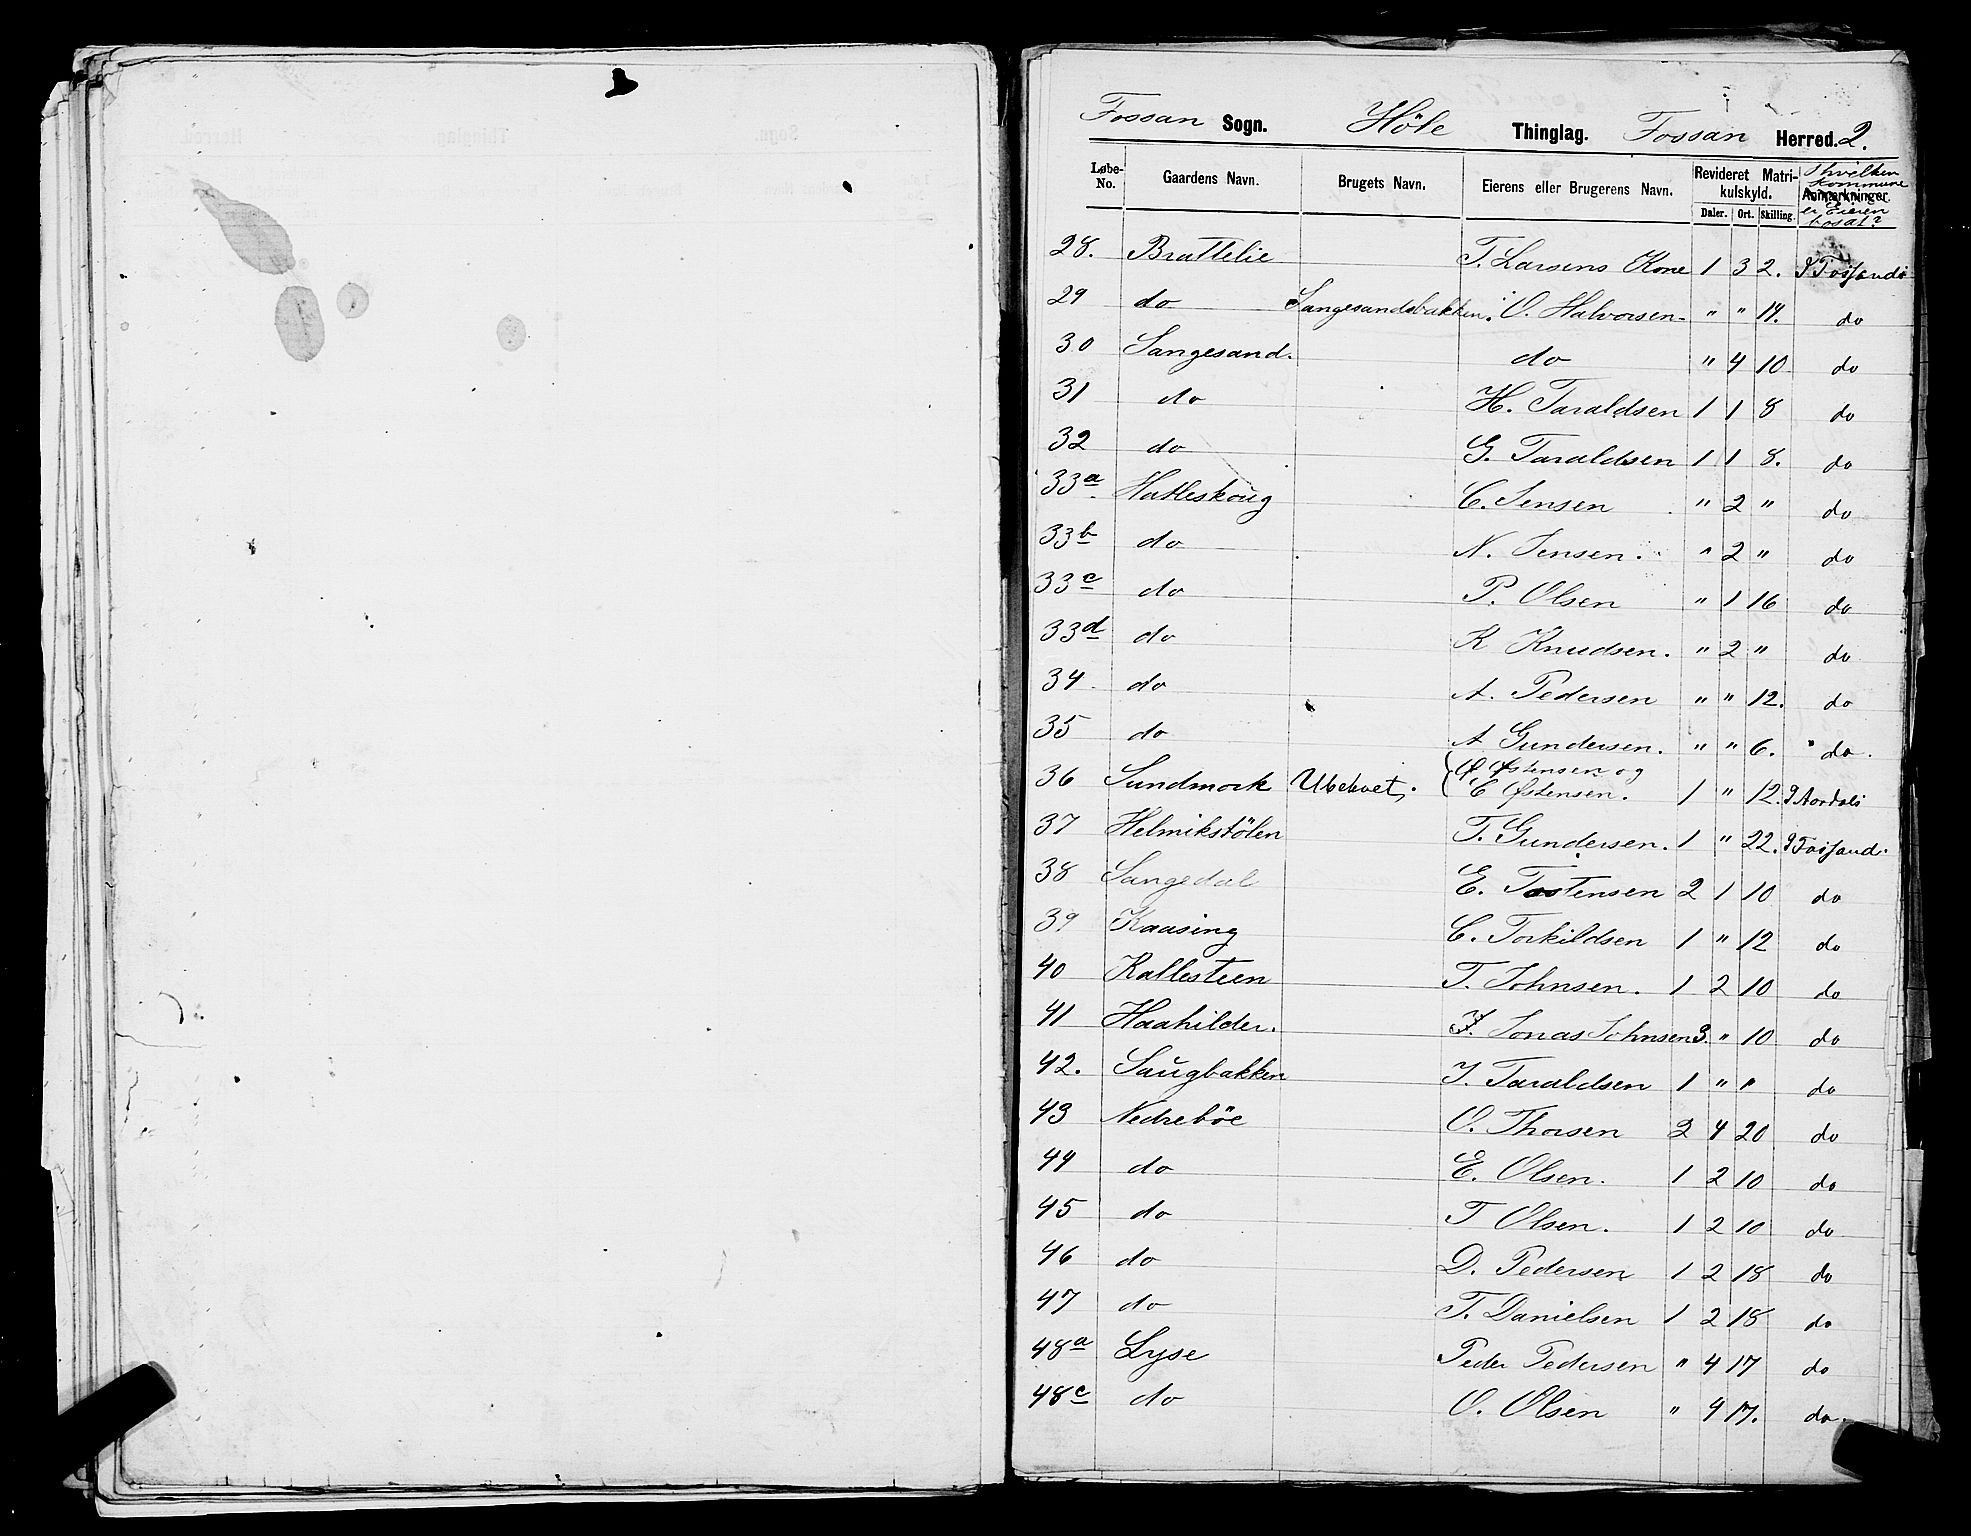 Fossan Sogn. Höle Thinglag. Fossan Herred. 2.
Løbe-No. Gaardens Navn. Brugets Navn. Eierens eller Brugerens Navn. Revideret Matrikulskyld. Daler. Ort. Skilling. Anmærkninger. I hvilken Kommune er Eieren bosat?
28. Brattelie T. Larsens Kone 1 3 2. I Fossand
29 do Sangesandsbakken. O. Halvorsen " " 14. do
30 Sangesand. do " 4 10 do
31 do H. Taraldsen 1 1 8 do
32 do G. Taraldsen 1 1 8. do
33a Hatleskoug C. Jensen " 2 " do
33b do N. Jensen. " 2 " do
33c do P. Olsen " 1 16 do
33d do K Knudsen. " 2 " do
34 do A. Pedersen " " 12. do
35 do A Gundersen. " " 6. " do.
36 Sundmork Ubeboet, Østensen og
E Østensen. 1 " 12. I Aardal
37 Helmikstölen T. Gundersen. 1 " 22. I Fossand.
38 Sangedal E. Tostensen 2 1 10 do
39 Kaasing C. Torkildsen 1 " 12 do
40 Kallesteen T. Johnsen. 1 2 10 do
41 Haahilder. Jonas Johnsen 3. " 10 do
42. Saugbakken J. Taraldsen 1 " " do
43 Nedreböe O. Thorsen 2 4 20 do
44 do E. Olsen. 1 2 10 do
45 do T Olsen. 1 2 10 do
46 do D. Pedersen 1 2 18 do
47 do T. Danielsen 1 2 18 do
48a Lyse Peder Pedersen " 4 17 do
48c do O. Olsen " 4 17. do.